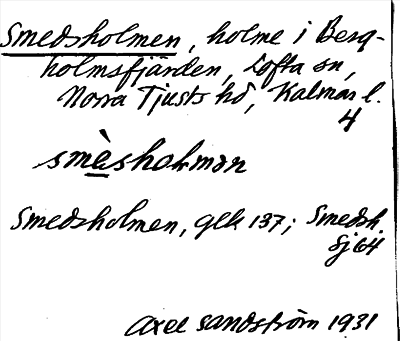 Smedsholmen, holme i Berg-
holmsfjärden, Lofta sn,
Norra Tjusts hd, Kalmar l.
4
smèsholmən
Smedsholmen, Gek 137; Smedsh.
Sj 64
Axel Sandström 1931